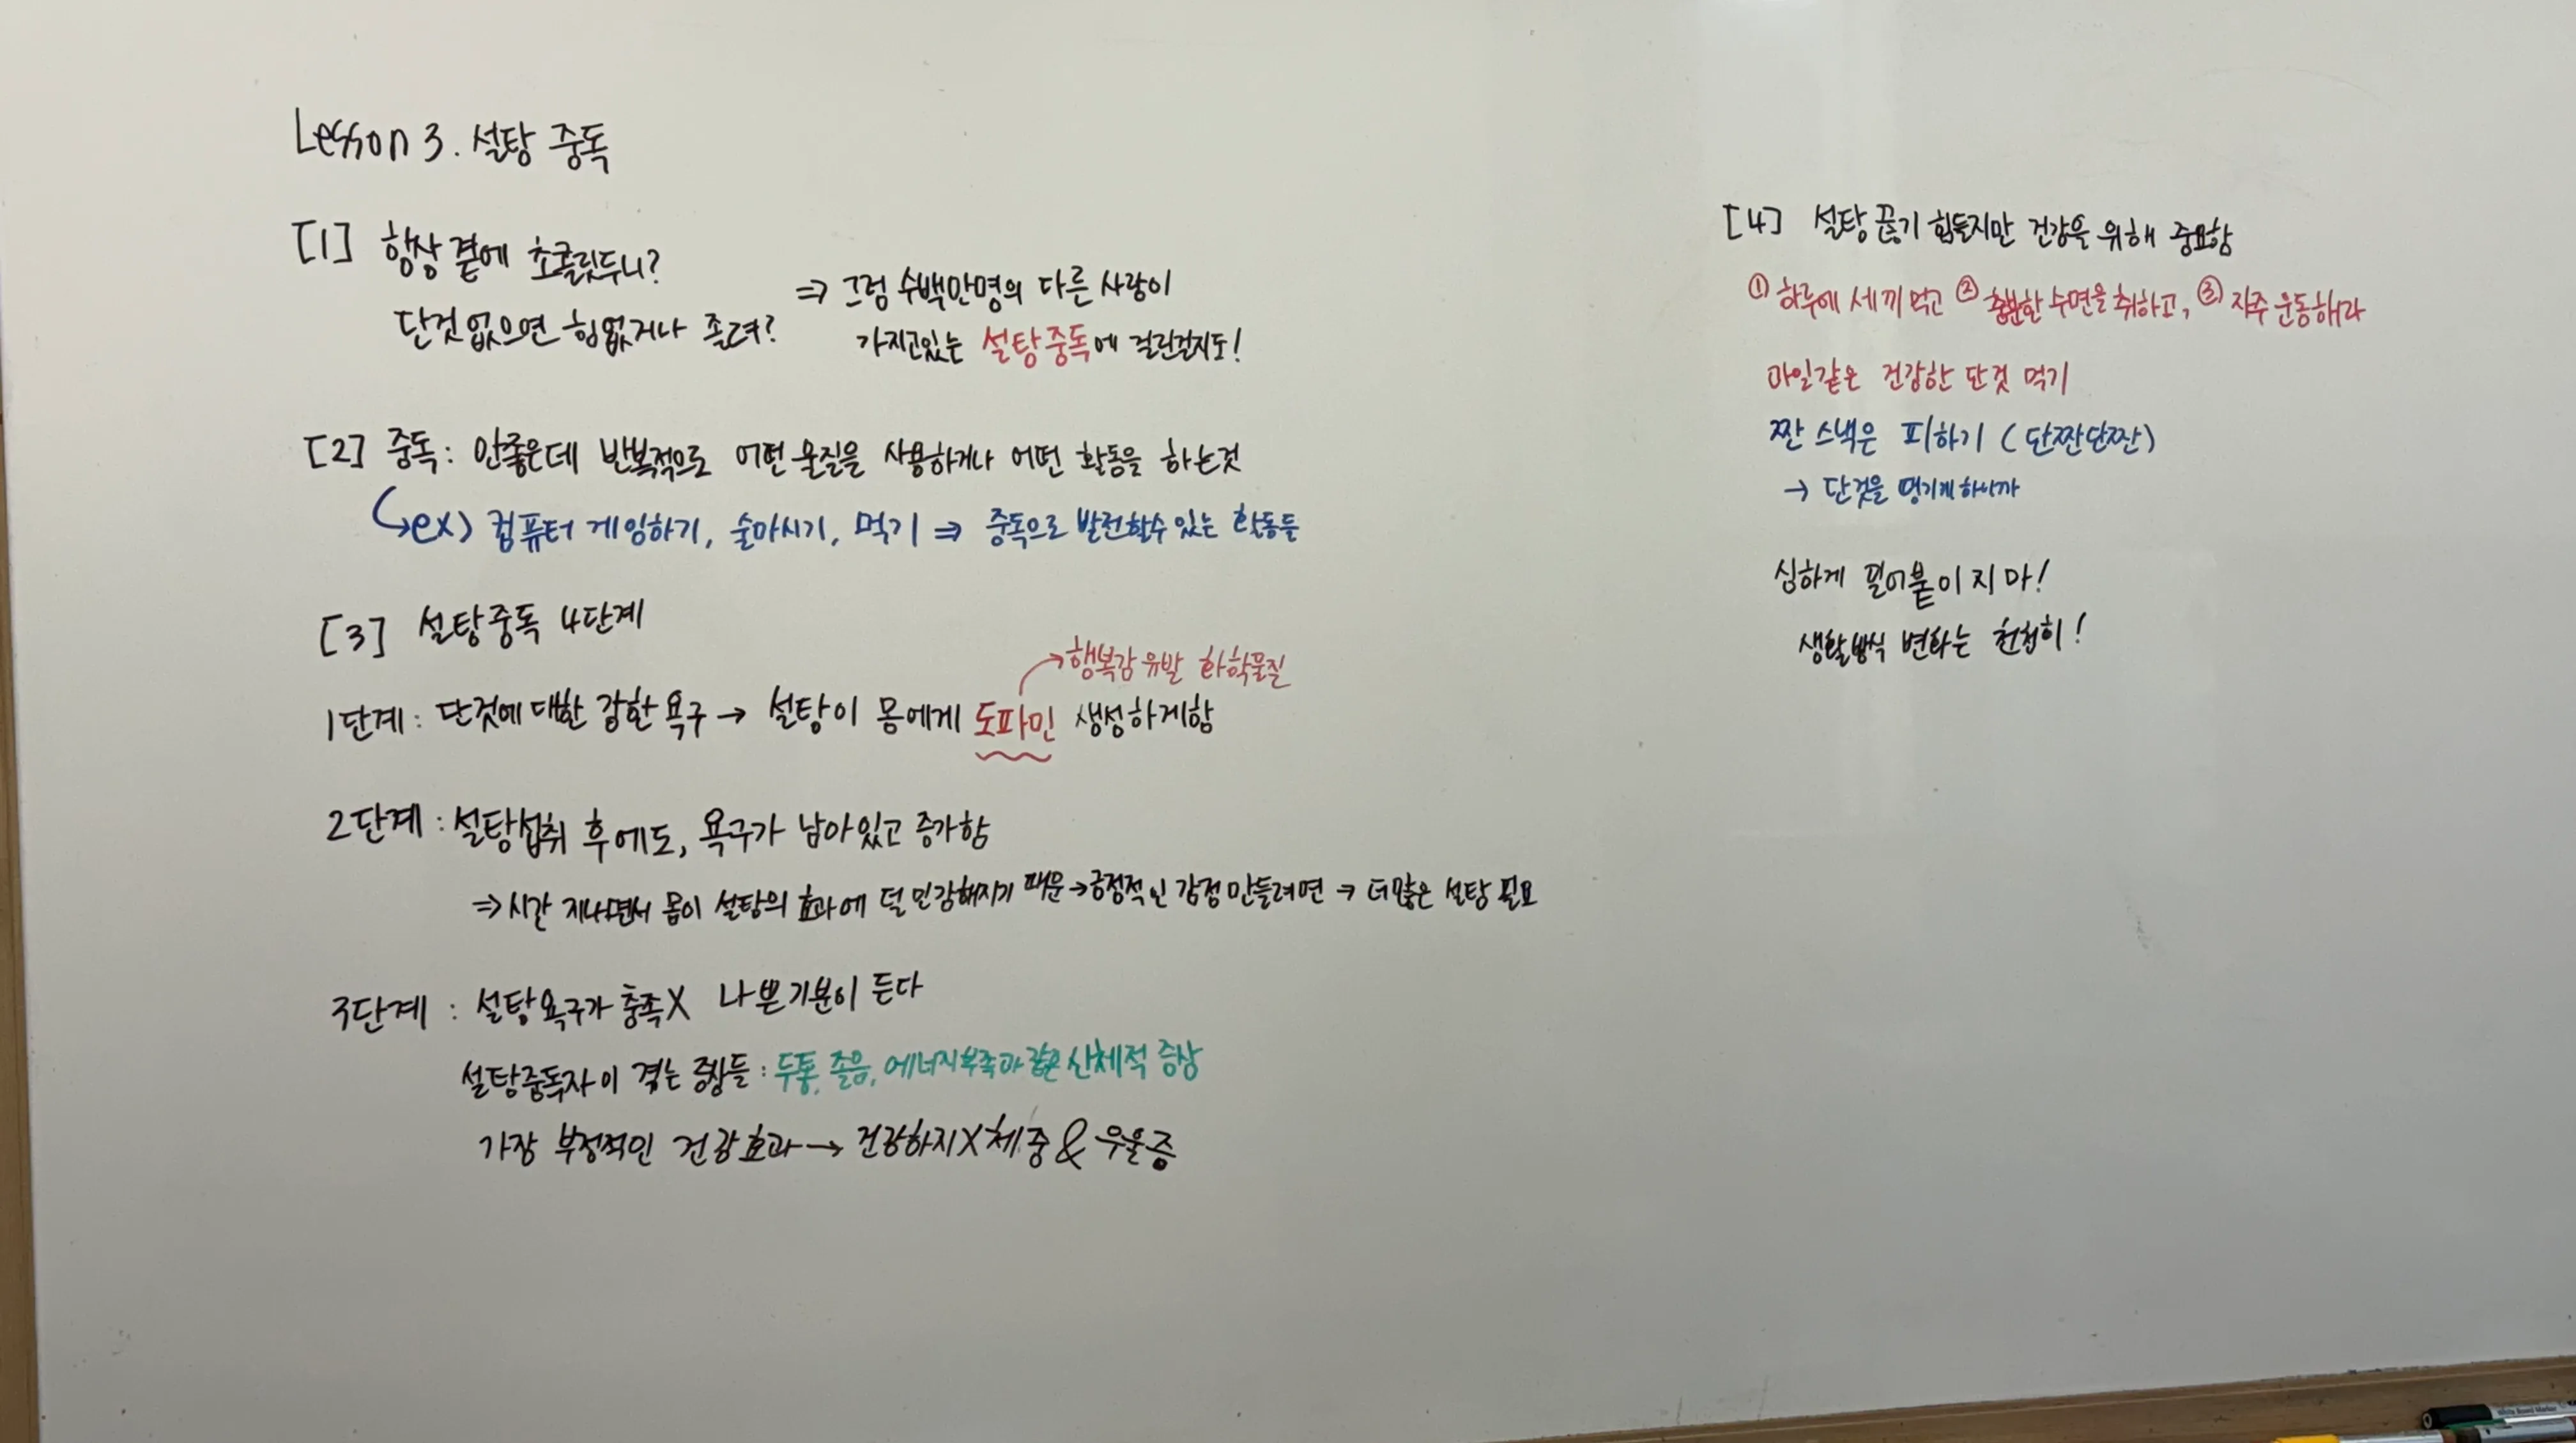 Lesson 3. 설탕 중독
[1] 항상 곁에 초콜릿두니?
단것 없으면 힘없거나 졸려?
⇒ 그럼 수백만명의 다른 사람이
가지고있는 설탕중독에 걸린걸지도!
[2] 중독: 안좋은데 반복적으로 어떤 물질을 사용하거나 어떤 활동을 하는것
↳ex) 컴퓨터 게임하기, 술마시기, 먹기 ⇒ 중독으로 발전할수 있는 활동들
[3] 설탕중독 4단계
→행복감 유발 화학물질
1단계: 단것에 대한 강한 욕구 → 설탕이 몸에게 도파민 생성하게함
2단계: 설탕섭취 후에도, 욕구가 남아있고 증가함
⇒ 시간 지나면서 몸이 설탕의 효과에 덜 민감해지기 때문→긍정적인 감정 만들려면 → 더많은 설탕 필요
3단계: 설탕욕구가 충족X 나쁜기분이 든다
설탕중독자이 겪는 증상들: 두통, 졸음, 에너지부족과 같은 신체적 증상
가장 부정적인 건강효과→ 건강하지X체중 & 우울증
[4] 설탕 끊기 힘들지만 건강을 위해 중요함
① 하루에 세끼 먹고 ② 충분한 수면을 취하고, ③ 자주 운동해라
과일같은 건강한 단것 먹기
짠 스낵은 피하기 (단짠단짠)
→ 단것을 땡기게하니까
심하게 밀어붙이지마!
생활방식 변화는 천천히!